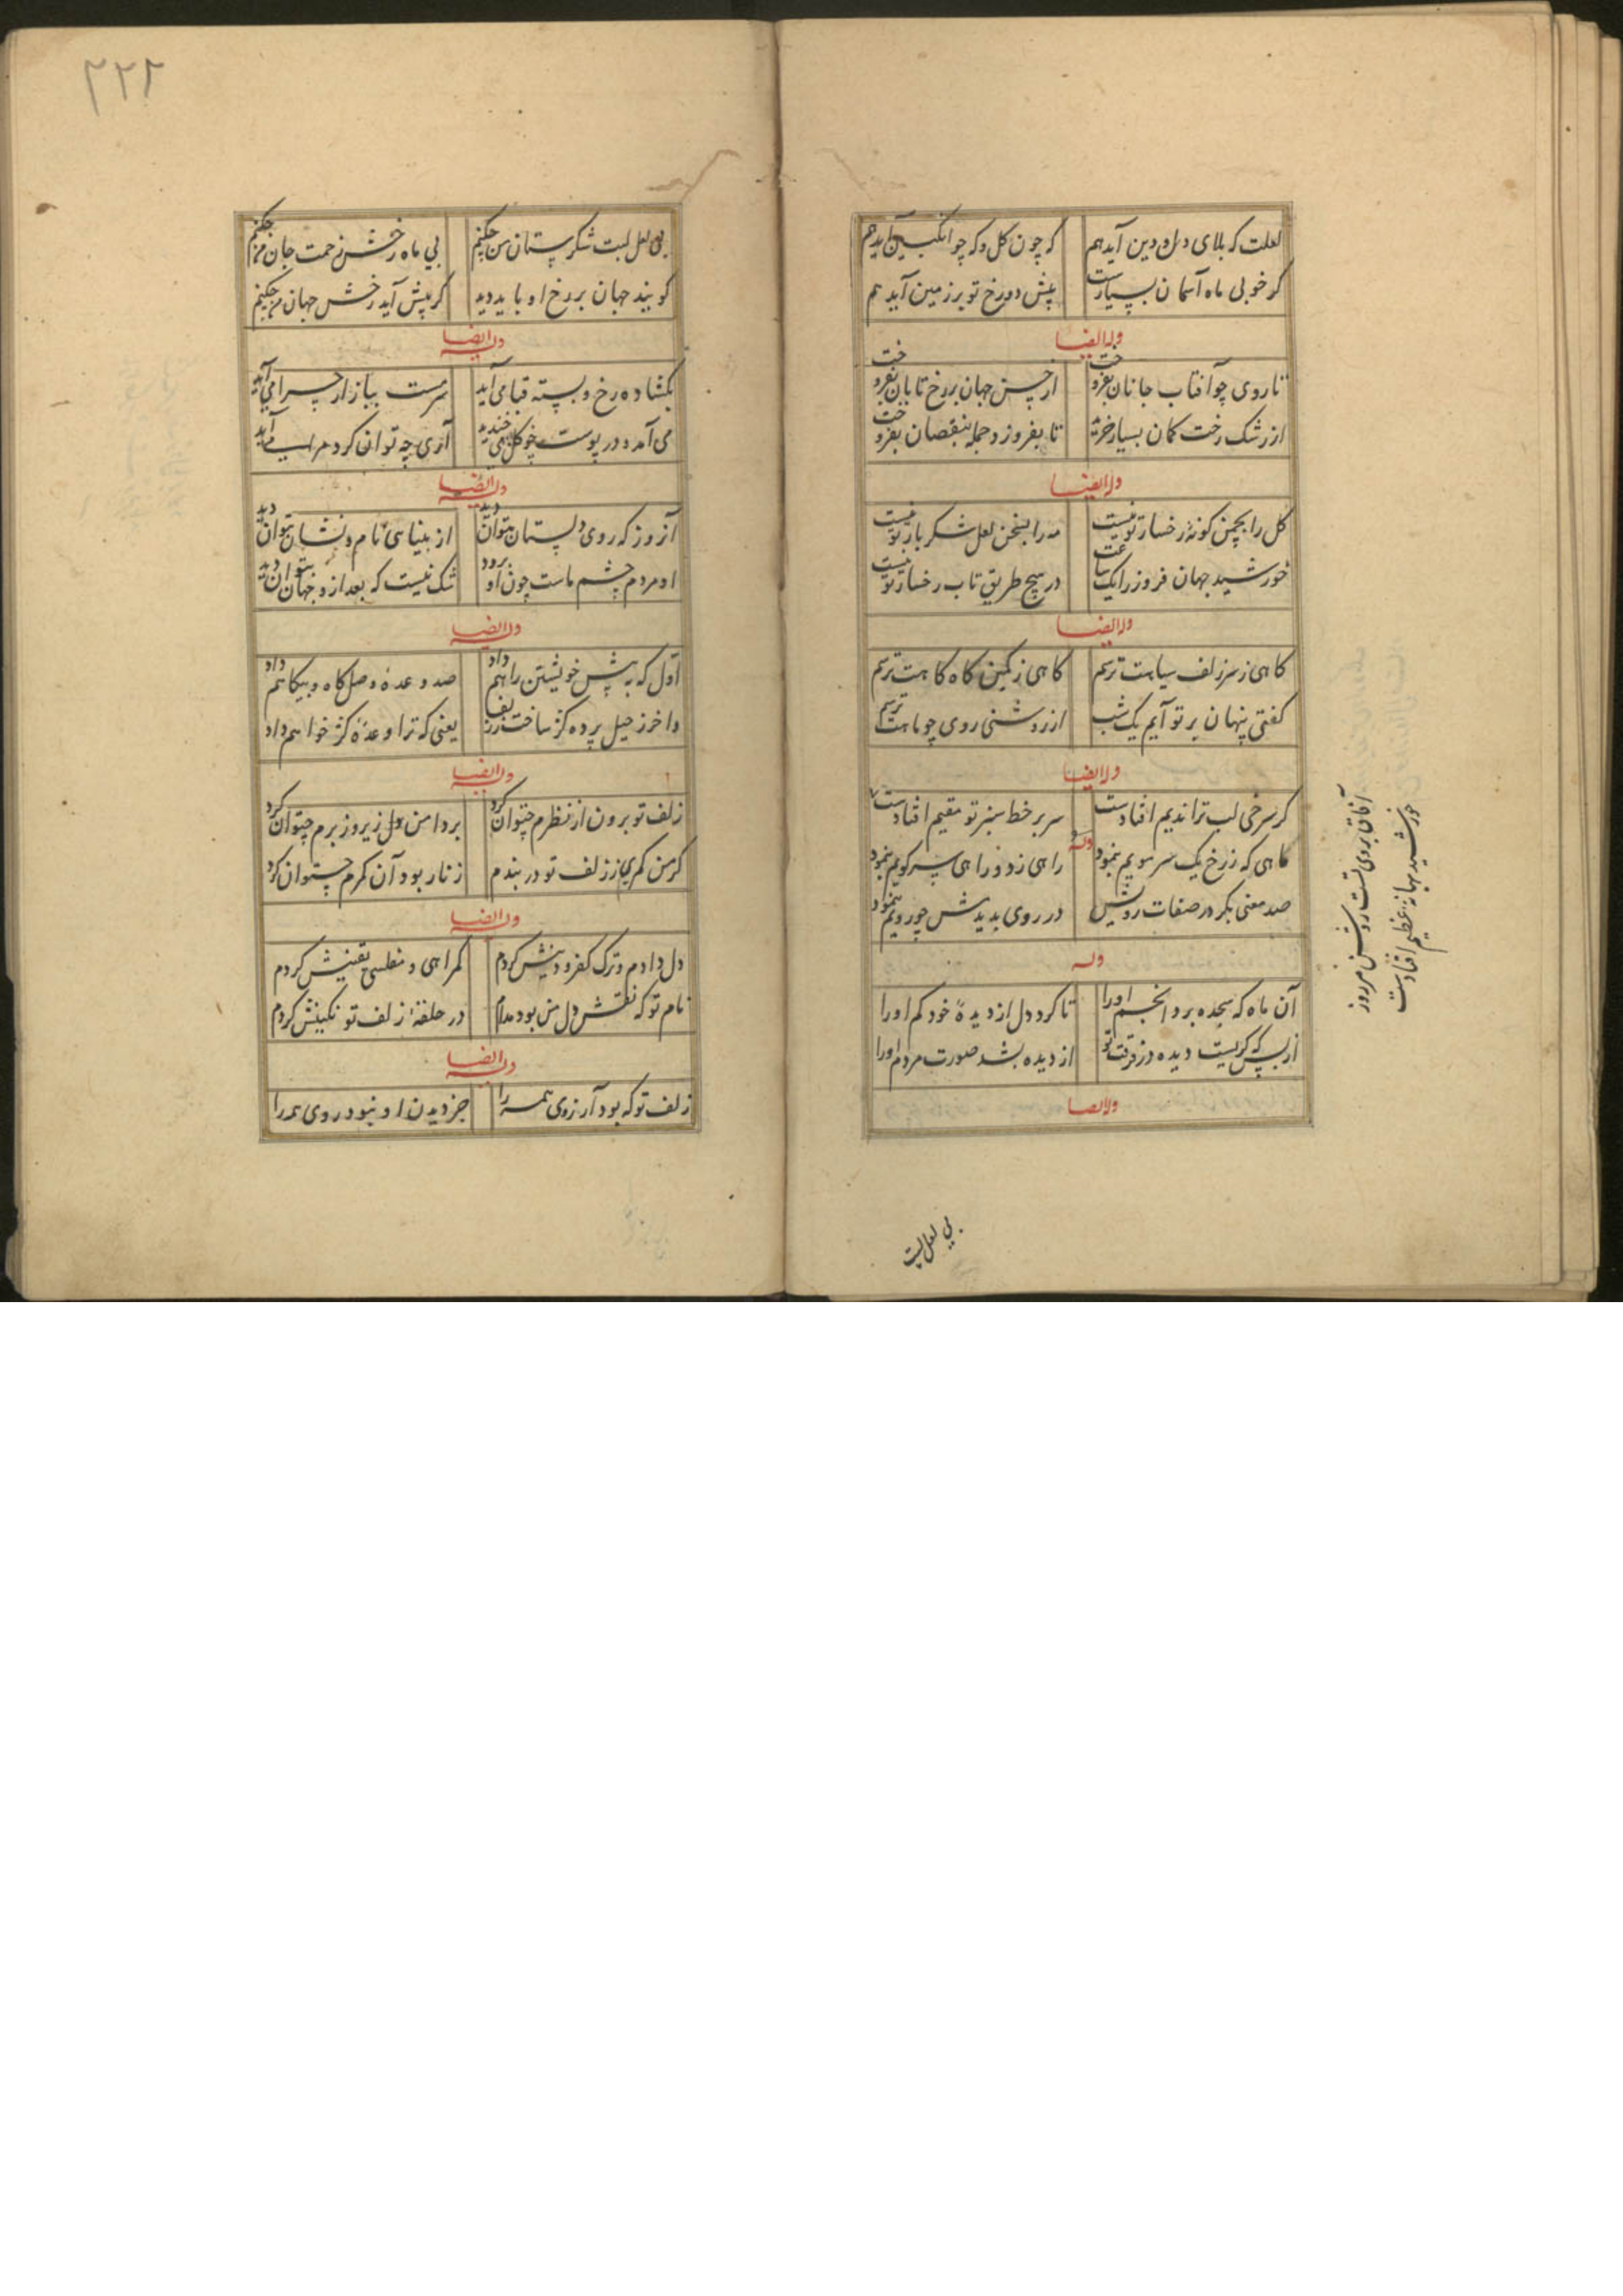 لعلت که بلای دل و دین آید هم که چون گل و که چو انگبین آید هم
گر خوبی ماه آسمان بسیارست پیش دو رخ تو بر زمین آید هم
وله ایضا
تا روی چو آفتاب جانان بفروخت از حسن جهان بر رخ تابان بفروخت
از رشک رخت کمان بسیار خرید تا بفروزد جمله بنقصان بفروخت
وله ایضا
کل را بچمن کونهٔ رخسار تو نیست مه را بسخن لعل شکر بار تو نیست
خورشید جهان فروز را یک ساعت در هیچ طریق تاب رخسار تو نیست
وله ایضا
کاهی ز سر زلف سیاهت ترسم کاهی ز کمین کاه کاهت ترسم
کفتی پنهان بر تو آیم یک شب از روشنی روی چو ماهت ترسم
وله ایضا
کر سرخی لب ترا ندیم افتادست سر بر خط سبز تو مقیم افتادست
آفاق بروی تست روشن امروز
خورشید بهانهٔ عظیم افتادست
وله
کاهی که ز رخ یک سر مویم بنمود راهی ز دو راهی سر کویم بنمود
صد معنی بکر در صفات رویش در روی بدیدش چو رویم بنمود
وله
آن ماه که سجده برد انجم او را تا کرد دل از دیدهٔ خود کم او را
از بس که کریست دیده در فرقت تو از دیده بشد صورت مردم او را
وله ایضا
بی لعل لبت
۲۲۲
بی لعل لبت شکرستان من چکنم بی ماه رخش زحمت جان من چکنم
کویند جهان بر رخ او باید دید کر پیش آید رخش جهان من چکنم
وله ایضا
بکشاده رخ و بسته قبا می آید سرمست ببازار چرا می آید
می آمد و در پوست چو کل می خندید آری چه توان کرد مرا می آید
وله ایضا
آنروز که روی دلستان بتوان دید از بیناسی نام و نشان بتوان دید
او مردم چشم ماست چون او برود شک نیست که بعد ازو جهان بتوان دید
وله ایضا
اول که به پیش خویشتن راهم داد صد وعدهٔ وصل کاه و بیکاهم داد
واخر ز حیل پرده کژ ساخت ز زلف یعنی که ترا وعدهٔ کژ خواهم داد
وله ایضا
زلف تو برون از نظرم چتوان کرد بر دامن دل زیر و زبرم چتوان کرد
کر من کمری ز زلف تو در بندم زنار بود آن کمرم چتوان کرد
وله ایضا
دل دادم و ترک کفر و دینش کردم کمراهی و مفلسی یقینش کردم
نام تو که نقش دل من بود مدام در حلقهٔ زلف تو نکینش کردم
وله ایضا
زلف تو که بود آرزوی همه را جز دیدن او نبود روی همه را